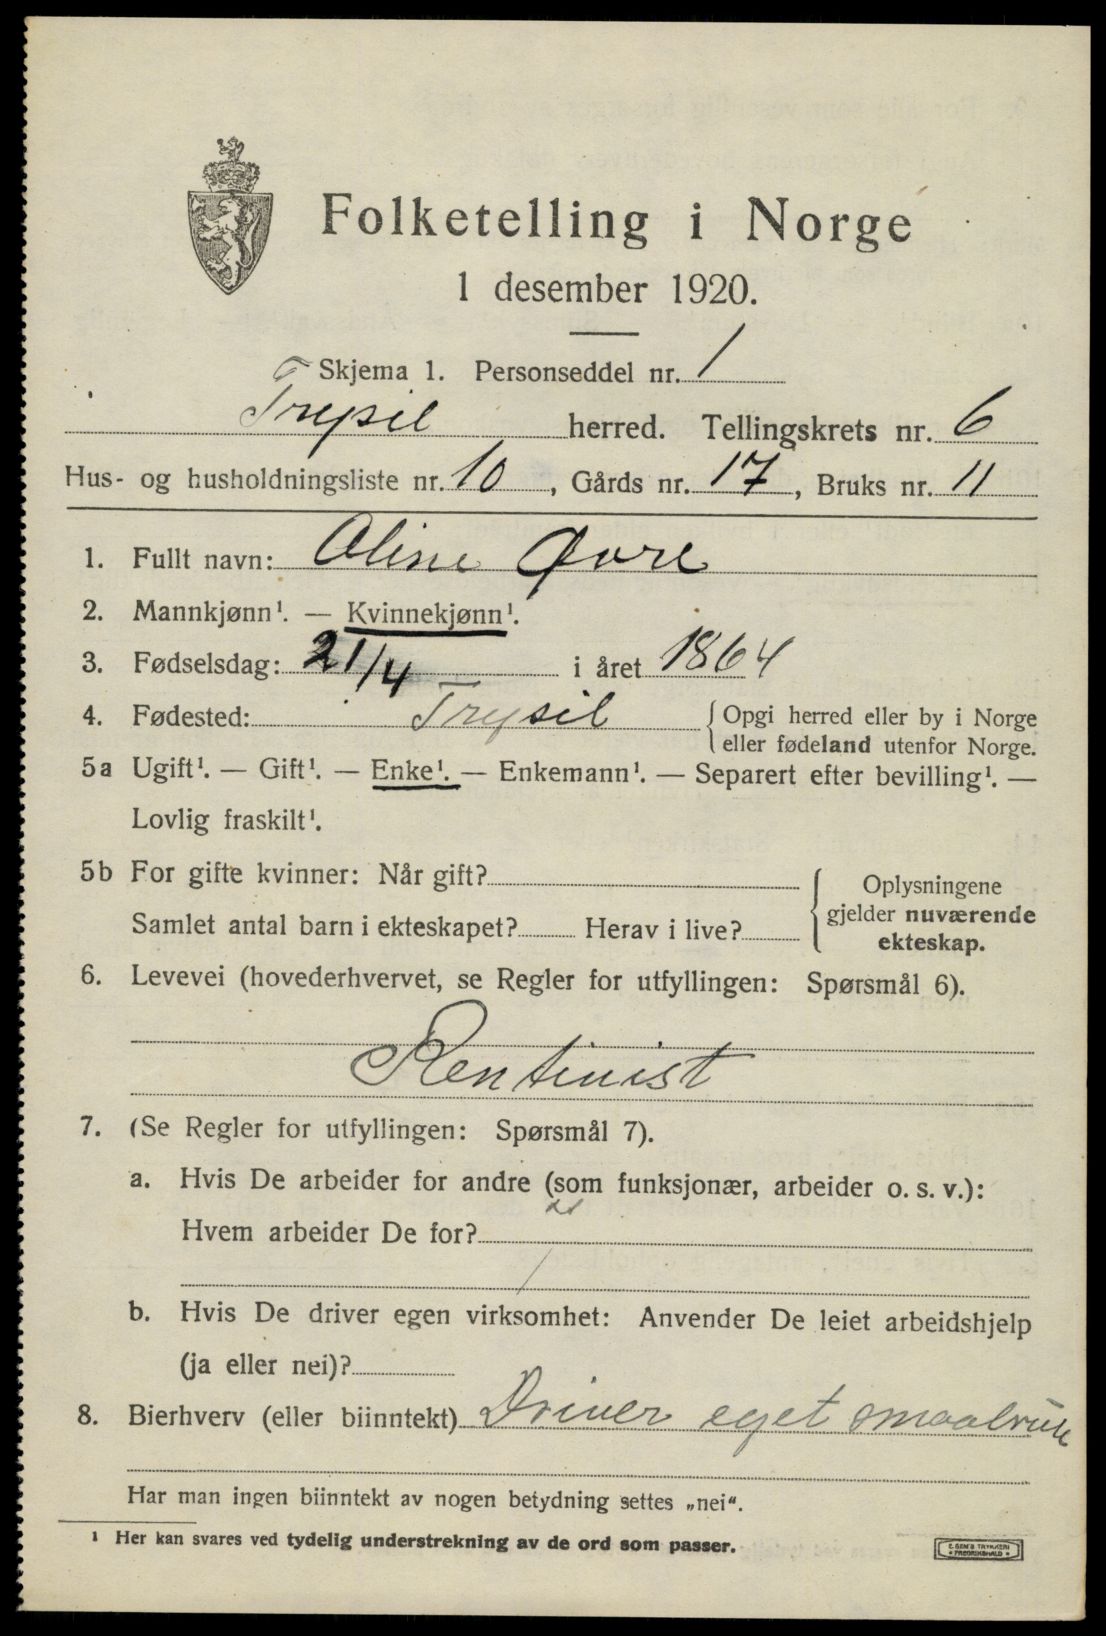 Folketelling i Norge
1 desember 1920.
Skjema 1. Personseddel nr. 1
Trysil herred. Tellingskrets nr. 6
Hus- og husholdningsliste nr. 10, Gårds nr. 17, Bruks nr. 11
1. Fullt navn: Oline Øvre
2. Mannkjønn¹. — Kvinnekjønn¹.
3. Fødselsdag: 21/4 i året 1864
4. Fødested: Trysil {Opgi herred eller by i Norge
eller fødeland utenfor Norge.
5a Ugift¹. — Gift¹. — Enke¹. — Enkemann¹. — Separert efter bevilling¹. —
Lovlig fraskilt¹.
5b For gifte kvinner: Når gift?
Samlet antal barn i ekteskapet? Herav i live?
{Oplysningene
gjelder nuværende
ekteskap.
6. Levevei (hovederhvervet, se Regler for utfyllingen: Spørsmål 6).
Rentinist
7. (Se Regler for utfyllingen: Spørsmål 7).
a. Hvis De arbeider for andre (som funksjonær, arbeider o. s. v.):
Hvem arbeider De for?
b. Hvis De driver egen virksomhet: Anvender De leiet arbeidshjelp
(ja eller nei)?
8. Bierhverv (eller biinntekt) Driver eget smaabruk
Har man ingen biinntekt av nogen betydning settes „nei“.
¹ Her kan svares ved tydelig understrekning av de ord som passer.
E. SEM'S TRYKKERI
• FREDRIKSHALD •